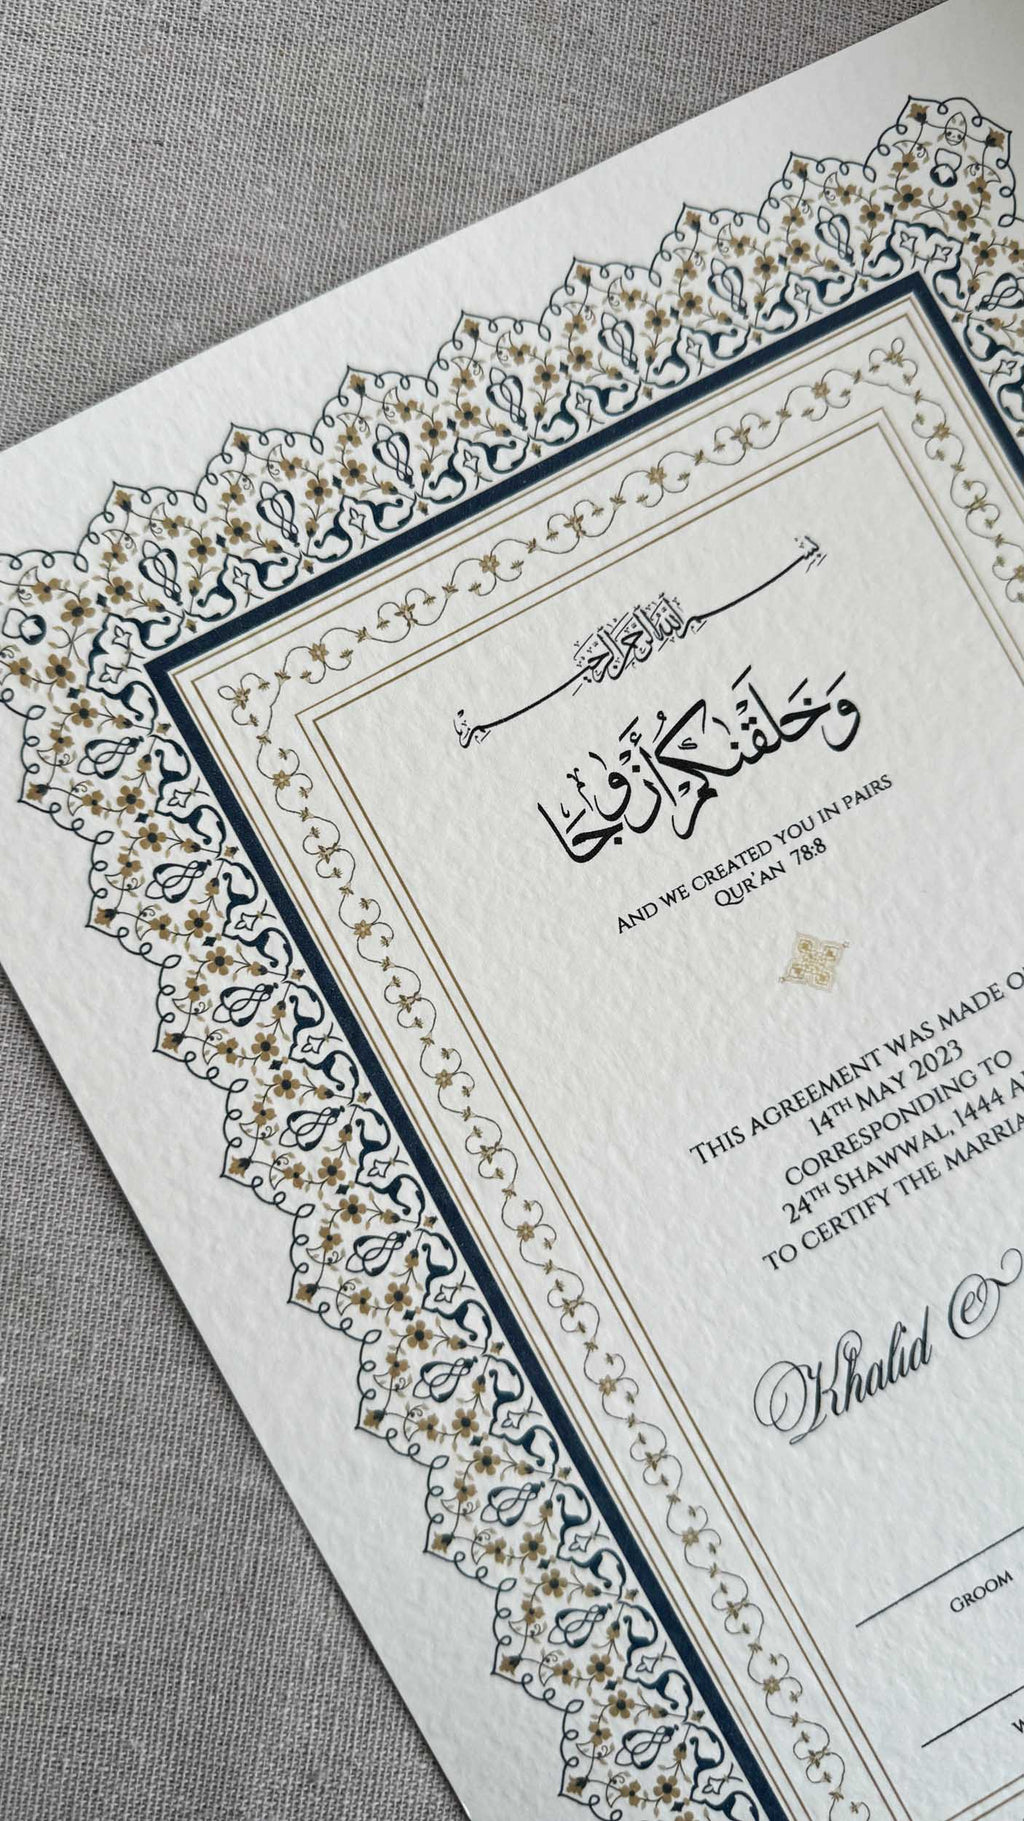 بِسْمِ اللَّهِ الرَّحْمَٰنِ الرَّحِيمِ
وَخَلَقْنَٰكُمْ أَزْوَٰجًا
AND WE CREATED YOU IN PAIRS
QUR'AN 78:8
THIS AGREEMENT WAS MADE O
14TH MAY 2023
CORRESPONDING TO
24TH SHAWWAL, 1444 A
TO CERTIFY THE MARRIA
Khalid &
GROOM
W